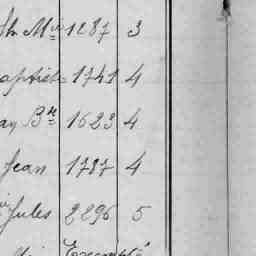 Mie 1287 3
aptiste 1741 4
Bte 1623 4
Jean 1787 4
Jules 2296 5
Exempté